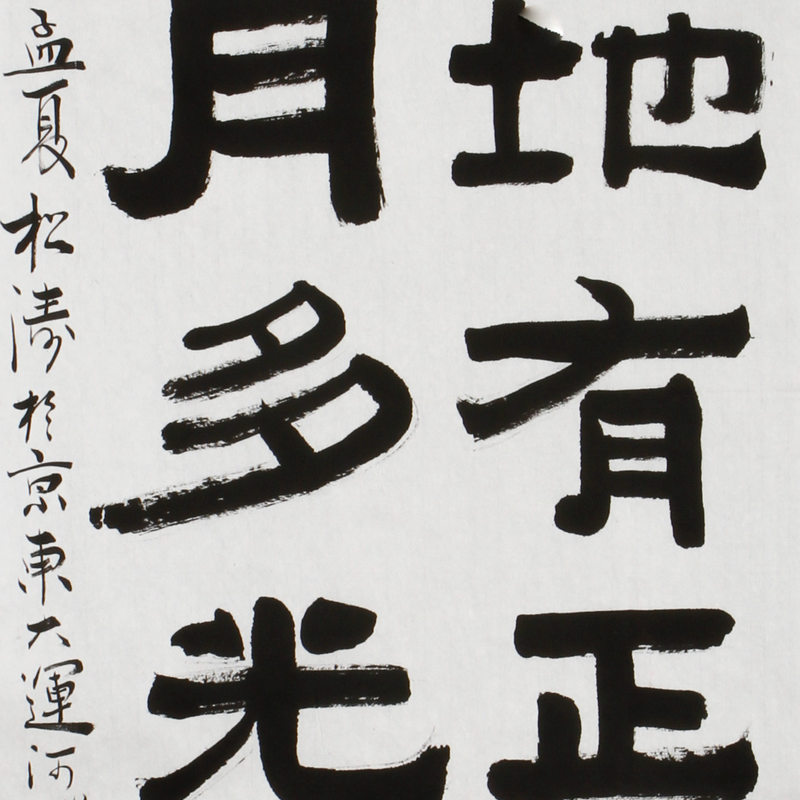 地有正
月多光
孟夏松涛於京東大運河